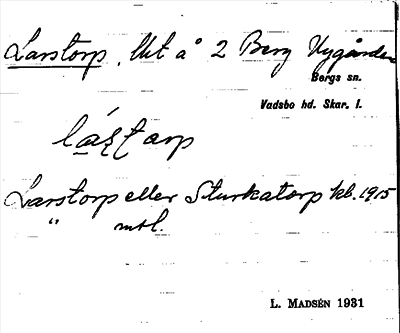 Larstorp, Utt å 2 Berg Nygården
Bergs sn.
Vadsbo hd. Skar. l.
Larstorp eller Sturkatorp kb. 1915
" mtl.
L. MADSÉN 1931